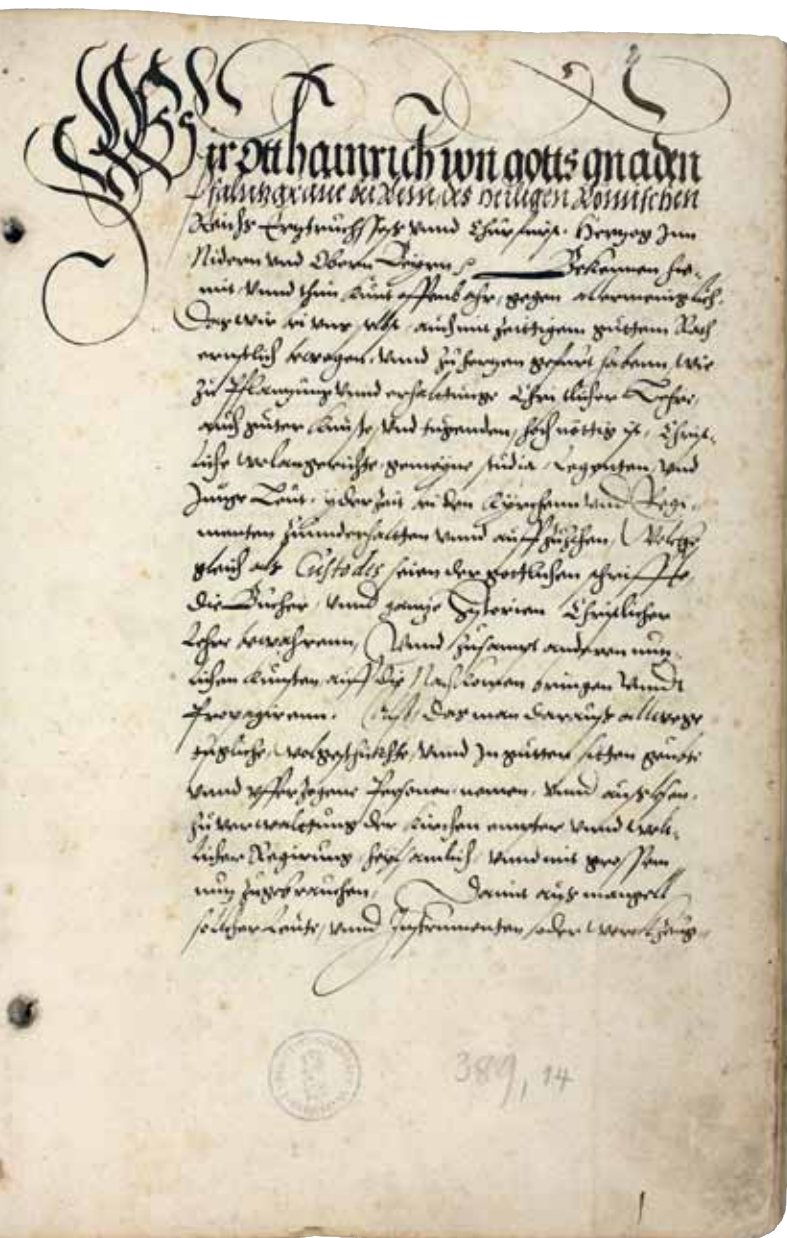 Wir Ott hainrich von gotts gnaden
Pfaltzgraue bei Rein, des Heiligen Romischen
Reichs Ertztruchsses vnnd Churfurst. Hertzog Inn
Nidern vnd Obern Beyrn Bekennen hie-
mit vnnd thun kunt offenbahr, gegen allermeniglich.
Das wir bei vns selbs, auch mit zeittigem guttem Rath
ernstlich bewogen, vnnd zu hertzen gefurt habenn, wie
zu Pflantzung vnnd erhaltunge Christlicher Lehre,
auch guter kunste, vnd tugenden, hoch nöttig ist, Christ-
liche wolangerichte gemeyne studia, Regenten, vnd
Junge Leut, yder Zeit in den kyrchenn vnd Regi-
menten zuunderhaltten vnnd auffzuziehen, Welche
gleich als Custodes seien der gottlichen schriffte,
die Bucher, vnnd gantze Hystorien Christlicher
Lehre bewahrenn, Vnnd zusampt anderen nutz-
lichen kunsten auff die Nachkomen bringen vnnd
Propagirenn. Auch das man darauss allwege
tugliche, wolgeschickhte, vnnd In gutten sitten geubte
vnnd vfferzogene Personen nemen, vnnd auslesen,
zu verwalttung der kirchen empter vnnd welt-
licher Regirung, heilsamlich, vnnd mit grossem
nutz zugebrauchen, Damit aus mangell
sollcher Leute, vnnd Instrumenten oder werckhzeug
389, 14